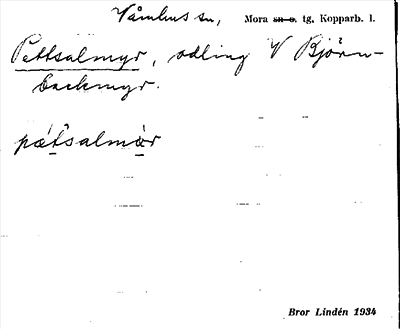 Våmhus sn, Mora sn o. tg, Kopparb. l.
Pettsalmyr, odling V Björn-
backmyr.
pæ̀tsalmær
Bror Lindén 1934